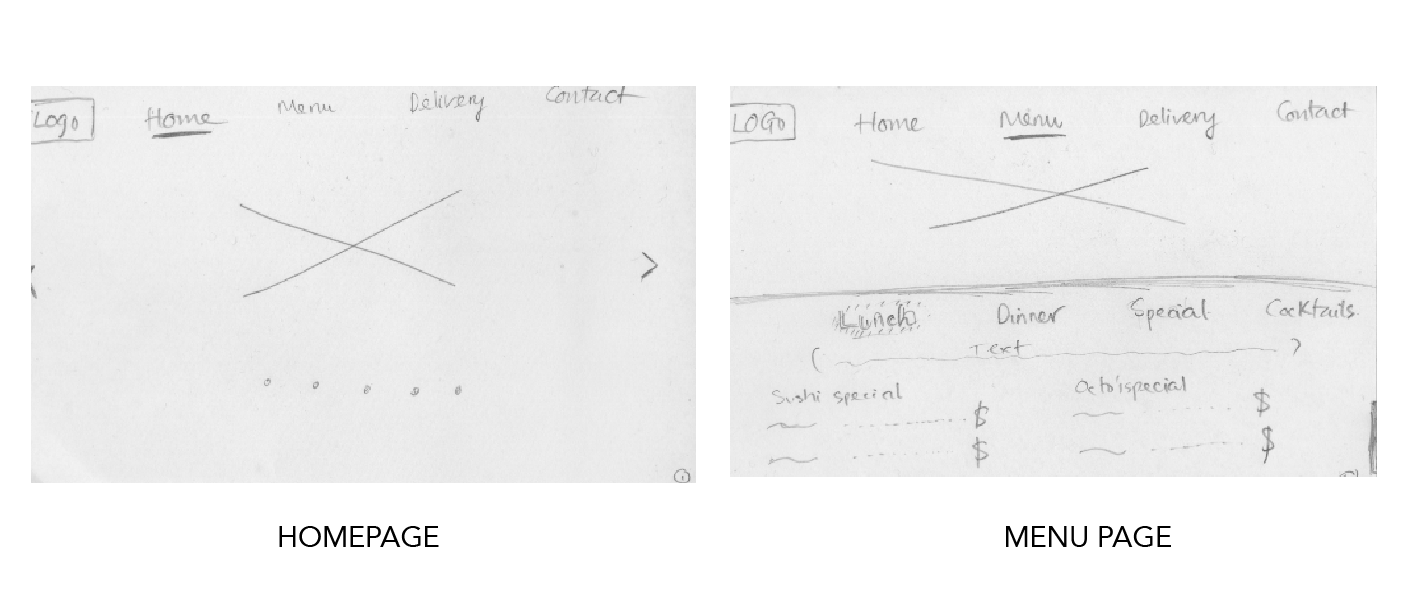 Logo Home Menu Delivery Contact
1
HOMEPAGE
LOGO Home Menu Delivery Contact
Lunch Dinner Special Cocktails
Text
Sushi special Octo'special
$ $
$ $
MENU PAGE